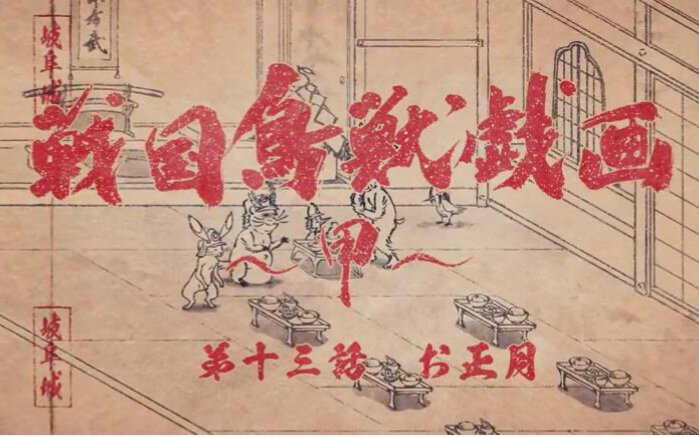 岐阜城
戦国鳥獣戯画
〜甲〜
第十三話 お正月
岐阜城